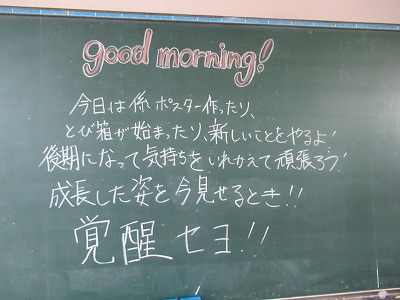 good morning!
今日は係ポスター作ったり、
とび箱が始まったり、新しいことをやるよ!
後期になって気持ちをいれかえて頑張ろう!
成長した姿を今見せるとき!!
覚醒セヨ!!